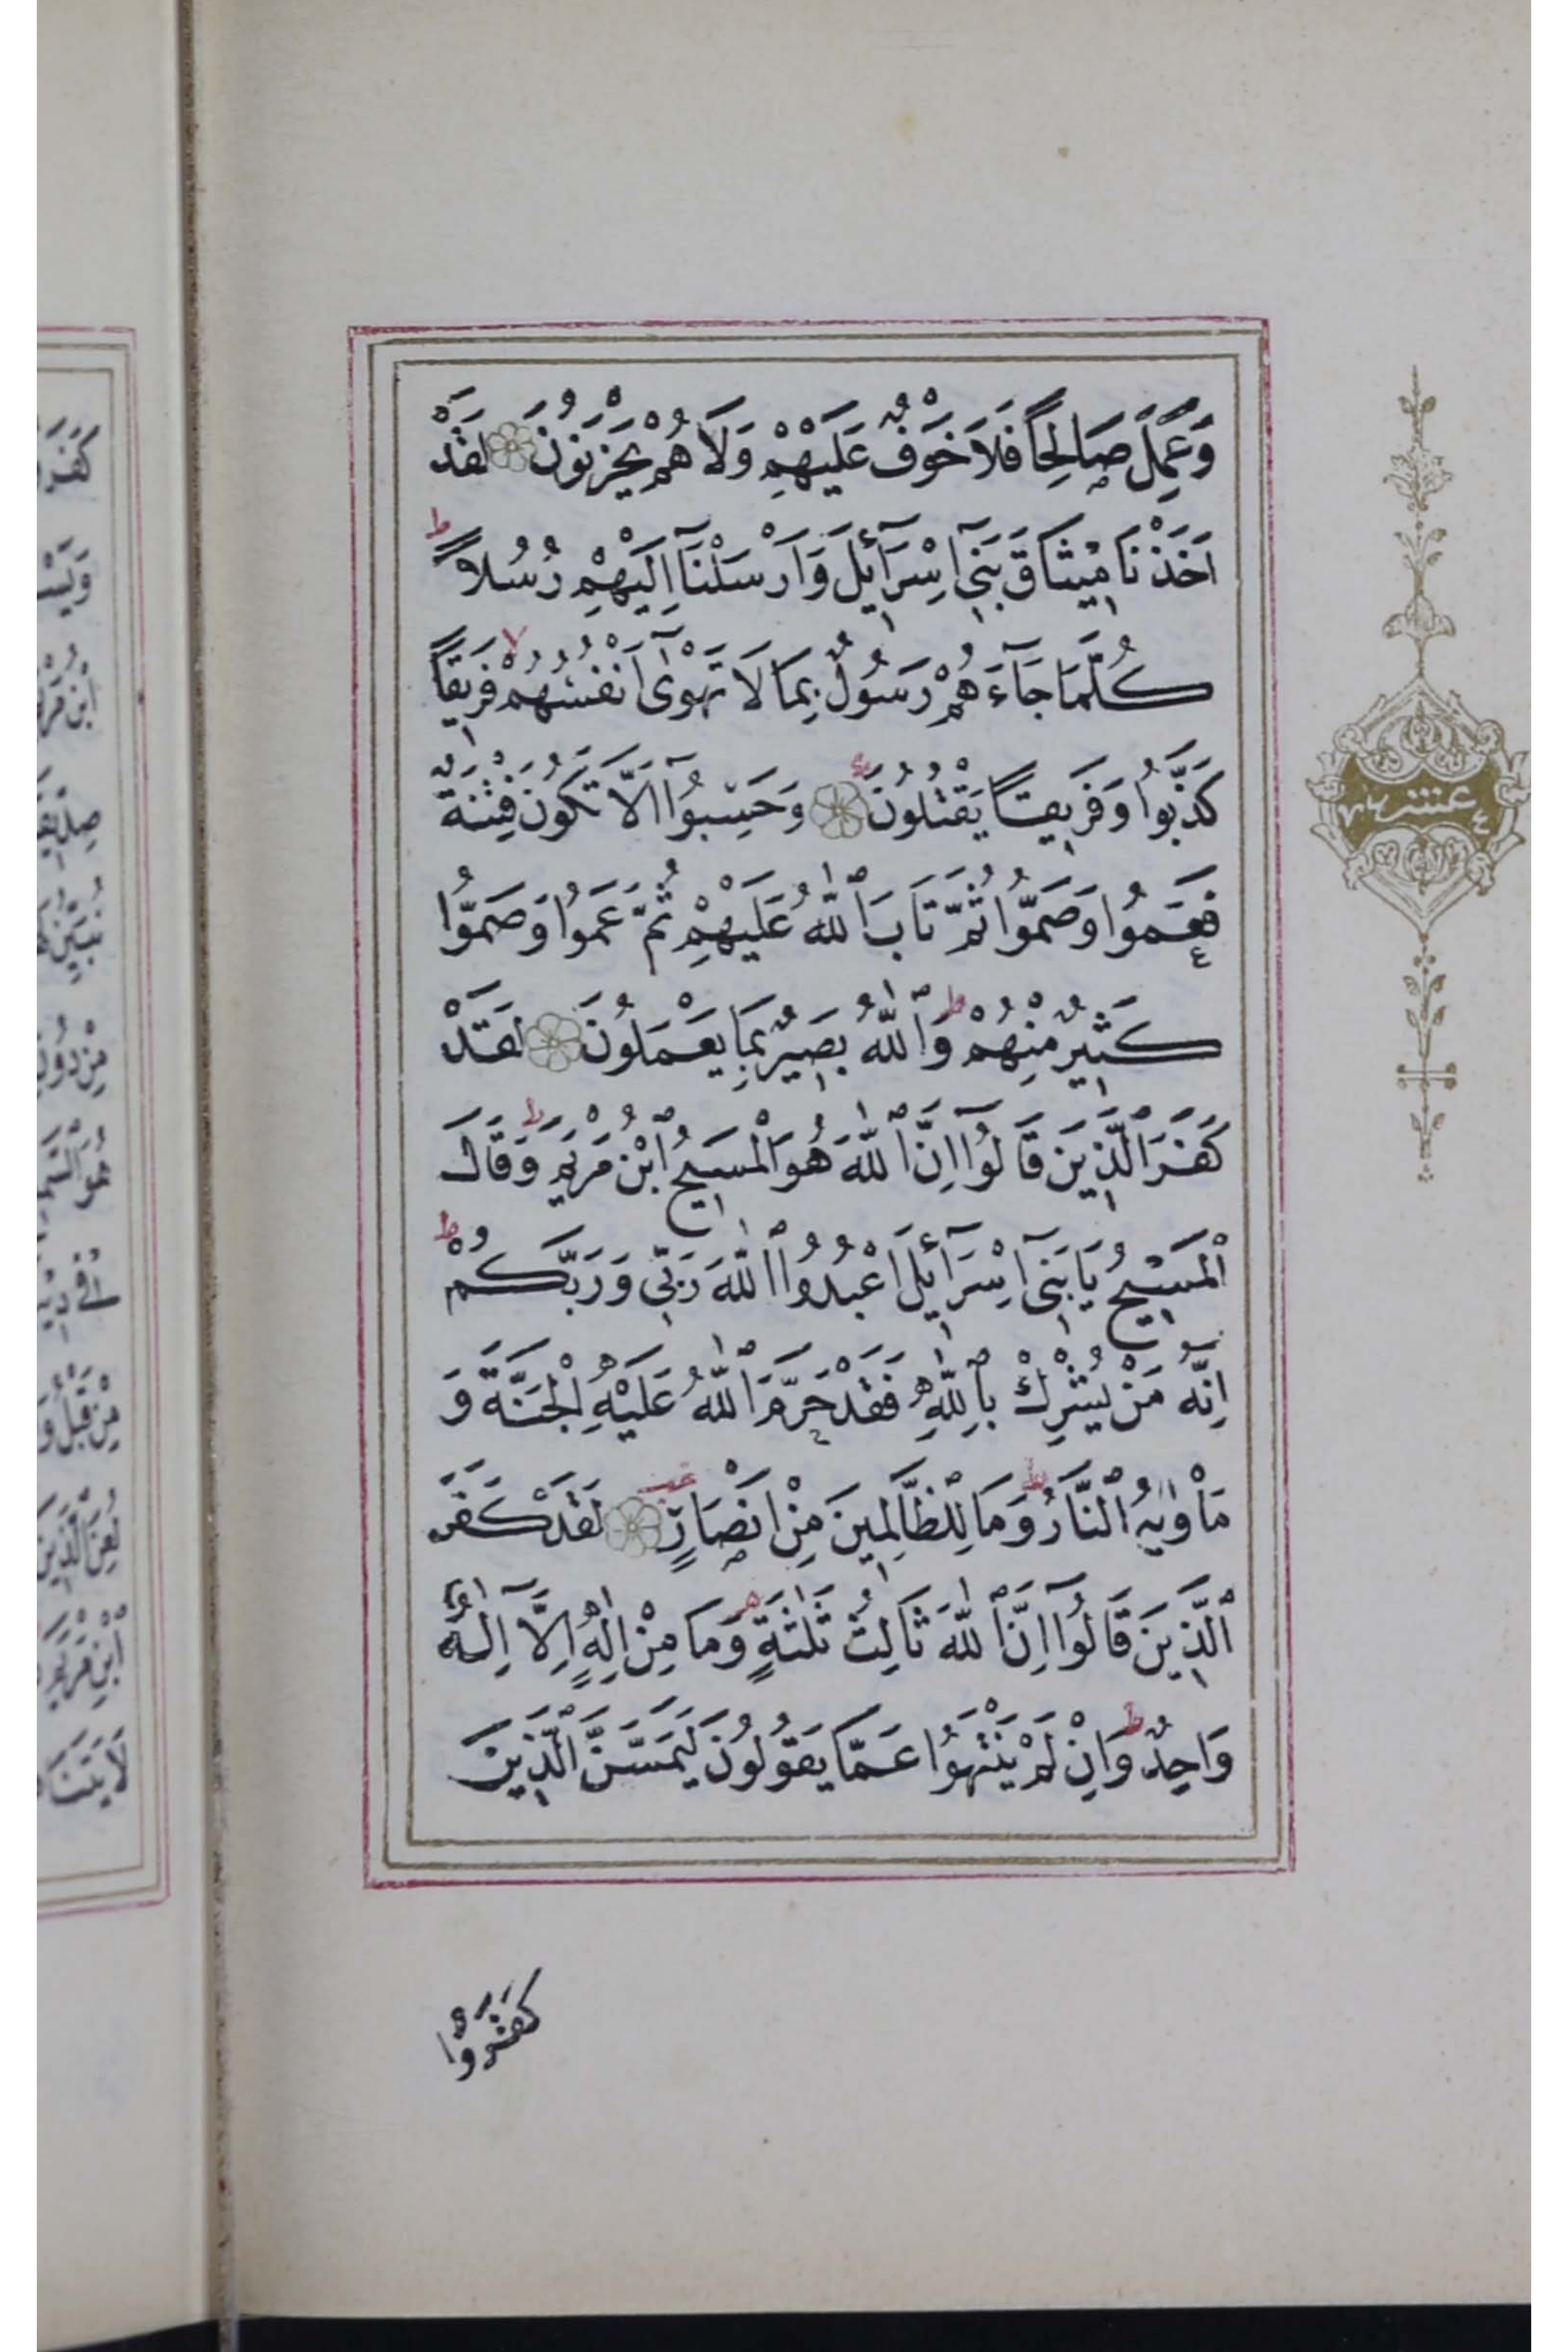 وَعَمِلَ صَالِحًا فَلَا خَوْفٌ عَلَيْهِمْ وَلَا هُمْ يَحْزَنُونَ لَقَدْ
اَخَذْنَا مِيثَاقَ بَنِٓى اِسْرَٓائِلَ وَاَرْسَلْنَٓا اِلَيْهِمْ رُسُلًا ط
كُلَّمَا جَٓاءَهُمْ رَسُولٌ بِمَا لَا تَهْوٰٓى اَنْفُسُهُمْ لا فَرِيقًا
كَذَّبُوا وَفَرِيقًا يَقْتُلُونَ وَحَسِبُٓوا اَلَّا تَكُونَ فِتْنَةٌ
فَعَمُوا وَصَمُّوا ثُمَّ تَابَ ٱللّٰهُ عَلَيْهِمْ ثُمَّ عَمُوا وَصَمُّوا
كَثِيرٌ مِنْهُمْ ط وَٱللّٰهُ بَصِيرٌ بِمَا يَعْمَلُونَ لَقَدْ
كَفَرَ ٱلَّذِينَ قَالُٓوا اِنَّ ٱللّٰهَ هُوَ ٱلْمَسِيحُ ٱبْنُ مَرْيَمَ ط وَقَالَ
ٱلْمَسِيحُ يَا بَنِٓى اِسْرَٓائِلَ ٱعْبُدُوا ٱللّٰهَ رَبِّى وَرَبَّكُمْ ط
اِنَّهُ مَنْ يُشْرِكْ بِٱللّٰهِ فَقَدْ حَرَّمَ ٱللّٰهُ عَلَيْهِ ٱلْجَنَّةَ وَ
مَأْوٰيهُ ٱلنَّارُ ط وَمَا لِلظَّالِمِينَ مِنْ اَنْصَارٍ لَقَدْ كَفَرَ
ٱلَّذِينَ قَالُٓوا اِنَّ ٱللّٰهَ ثَالِثُ ثَلٰثَةٍ وَمَا مِنْ اِلٰهٍ اِلَّٓا اِلٰهٌ
وَاحِدٌ ط وَاِنْ لَمْ يَنْتَهُوا عَمَّا يَقُولُونَ لَيَمَسَّنَّ ٱلَّذِينَ
كَفَرُوا
عشر